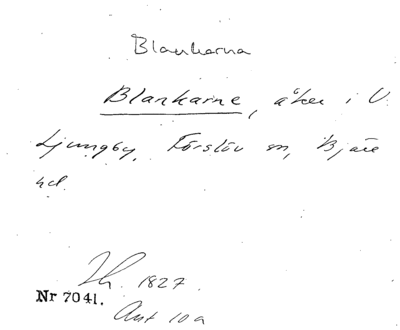 Blankarna
Blankarne, åker i V
Ljungby, Förslöv sn, Bjäre
hd.
1827.
Nr 7041.
Ant 10a